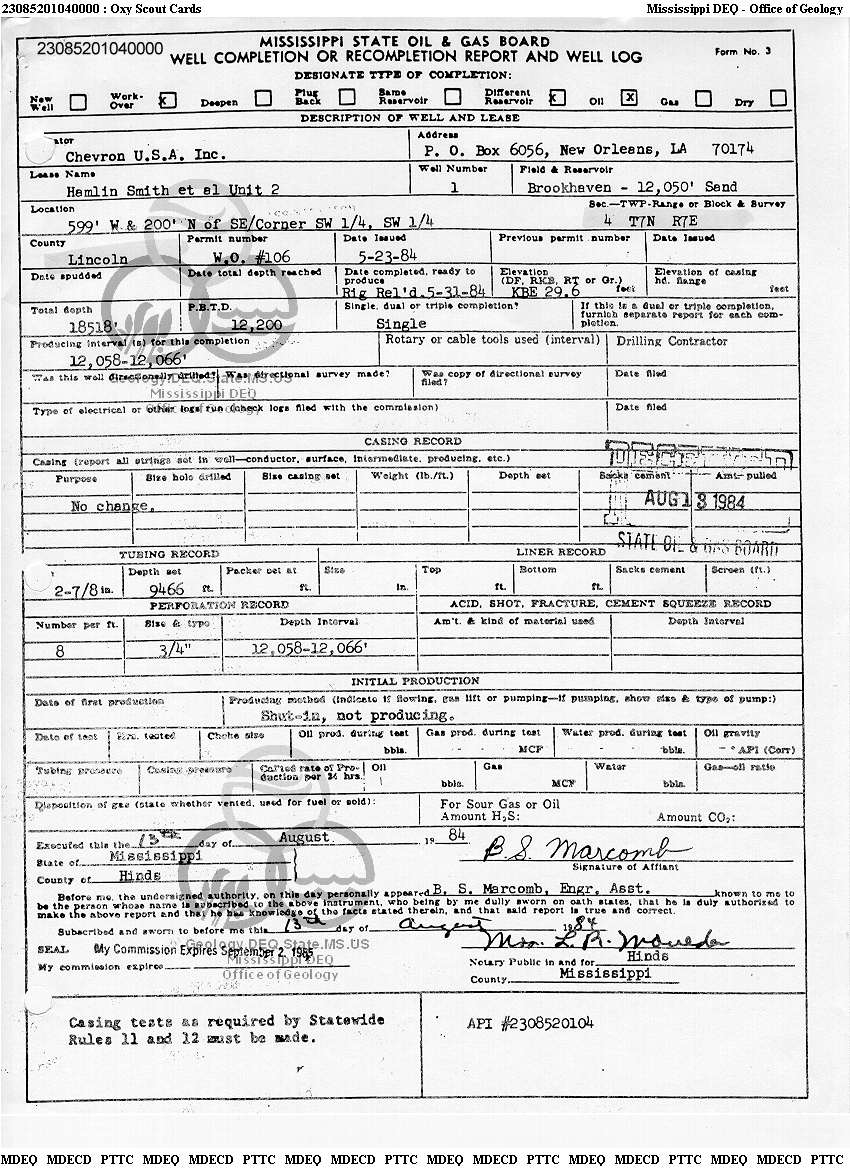 23085201040000 : Oxy Scout Cards Mississippi DEQ - Office of Geology
23085201040000
MISSISSIPPI STATE OIL & GAS BOARD
WELL COMPLETION OR RECOMPLETION REPORT AND WELL LOG
Form No. 3
DESIGNATE TYPE OF COMPLETION:
New Well Work-Over X Deepen Plug Back Same Reservoir Different Reservoir X Oil X Gas Dry
DESCRIPTION OF WELL AND LEASE
ator Address
Chevron U.S.A. Inc. P. O. Box 6056, New Orleans, LA 70174
Lease Name Well Number Field & Reservoir
Hamlin Smith et al Unit 2 1 Brookhaven - 12,050' Sand
Location Sec.—TWP-Range or Block & Survey
599' W & 200' N of SE/Corner SW 1/4, SW 1/4 4 T7N R7E
County Permit number Date Issued Previous permit number Date Issued
Lincoln W.O. #106 5-23-84
Date spudded Date total depth reached Date completed, ready to produce Elevation (DF, RKB, RT or Gr.) feet Elevation of casing hd. flange feet
Rig Rel'd.5-31-84 KBE 29.6
Total depth P.B.T.D. Single, dual or triple completion? If this is a dual or triple completion, furnish separate report for each completion.
18518' 12,200 Single
Producing interval (s) for this completion Rotary or cable tools used (interval) Drilling Contractor
12,058-12,066'
Was this well directionally drilled? Was directional survey made? Was copy of directional survey filed? Date filed
Geology.DEQ.State.MS.US
Mississippi DEQ
Office of Geology
Type of electrical or other logs run (check logs filed with the commission) Date filed
CASING RECORD
Casing (report all strings set in well—conductor, surface, intermediate, producing, etc.)
Purpose Size hole drilled Size casing set Weight (lb./ft.) Depth set Sacks cement Amt. pulled
No change.
RECEIVED
AUG 13 1984
STATE OIL & GAS BOARD
TUBING RECORD LINER RECORD
Depth set Packer set at Size Top Bottom Sacks cement Screen (ft.)
2-7/8 in. 9466 ft. ft. in. ft. ft.
PERFORATION RECORD ACID, SHOT, FRACTURE, CEMENT SQUEEZE RECORD
Number per ft. Size & type Depth Interval Am't. & kind of material used Depth Interval
8 3/4" 12,058-12,066'
INITIAL PRODUCTION
Date of first production Producing method (indicate if flowing, gas lift or pumping—if pumping, show size & type of pump:)
Shut-in, not producing.
Date of test Hrs. tested Choke size Oil prod. during test bbls. Gas prod. during test MCF Water prod. during test bbls. Oil gravity ° API (Corr)
Tubing pressure Casing pressure Cal'ted rate of Production per 24 hrs. Oil bbls. Gas MCF Water bbls. Gas—oil ratio
Disposition of gas (state whether vented, used for fuel or sold): For Sour Gas or Oil
Amount H2S: Amount CO2:
Executed this the 13TH day of August 19 84
State of Mississippi B. S. Marcomb
Signature of Affiant
County of Hinds
Before me, the undersigned authority, on this day personally appeared B. S. Marcomb, Engr. Asst. known to me to
be the person whose name is subscribed to the above instrument, who being by me dully sworn on oath states, that he is duly authorized to
make the above report and that he has knowledge of the facts stated therein, and that said report is true and correct.
Subscribed and sworn to before me this 13th day of August 1984
Geology.DEQ.State.MS.US
SEAL My Commission Expires September 2, 1985
Mississippi DEQ
My commission expires
Office of Geology
Notary Public in and for Hinds
County, Mississippi
Casing tests as required by Statewide
Rules 11 and 12 must be made.
API #2308520104
MDEQ MDECD PTTC MDEQ MDECD PTTC MDEQ MDECD PTTC MDEQ MDECD PTTC MDEQ MDECD PTTC MDEQ MDECD PTTC